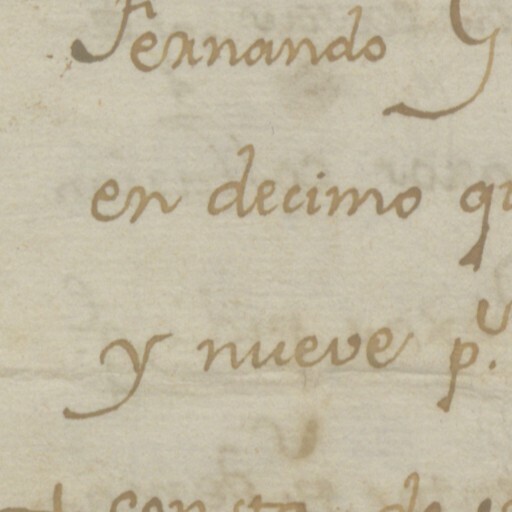 Fernando
en decimo
y nueve p.
consta de